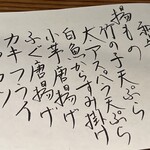 揚もの
竹の子天ぷら
大アスパラ天ぷら
白魚からすみ掛け
小芋唐揚げ
ふぐ唐揚げ
カキフライ